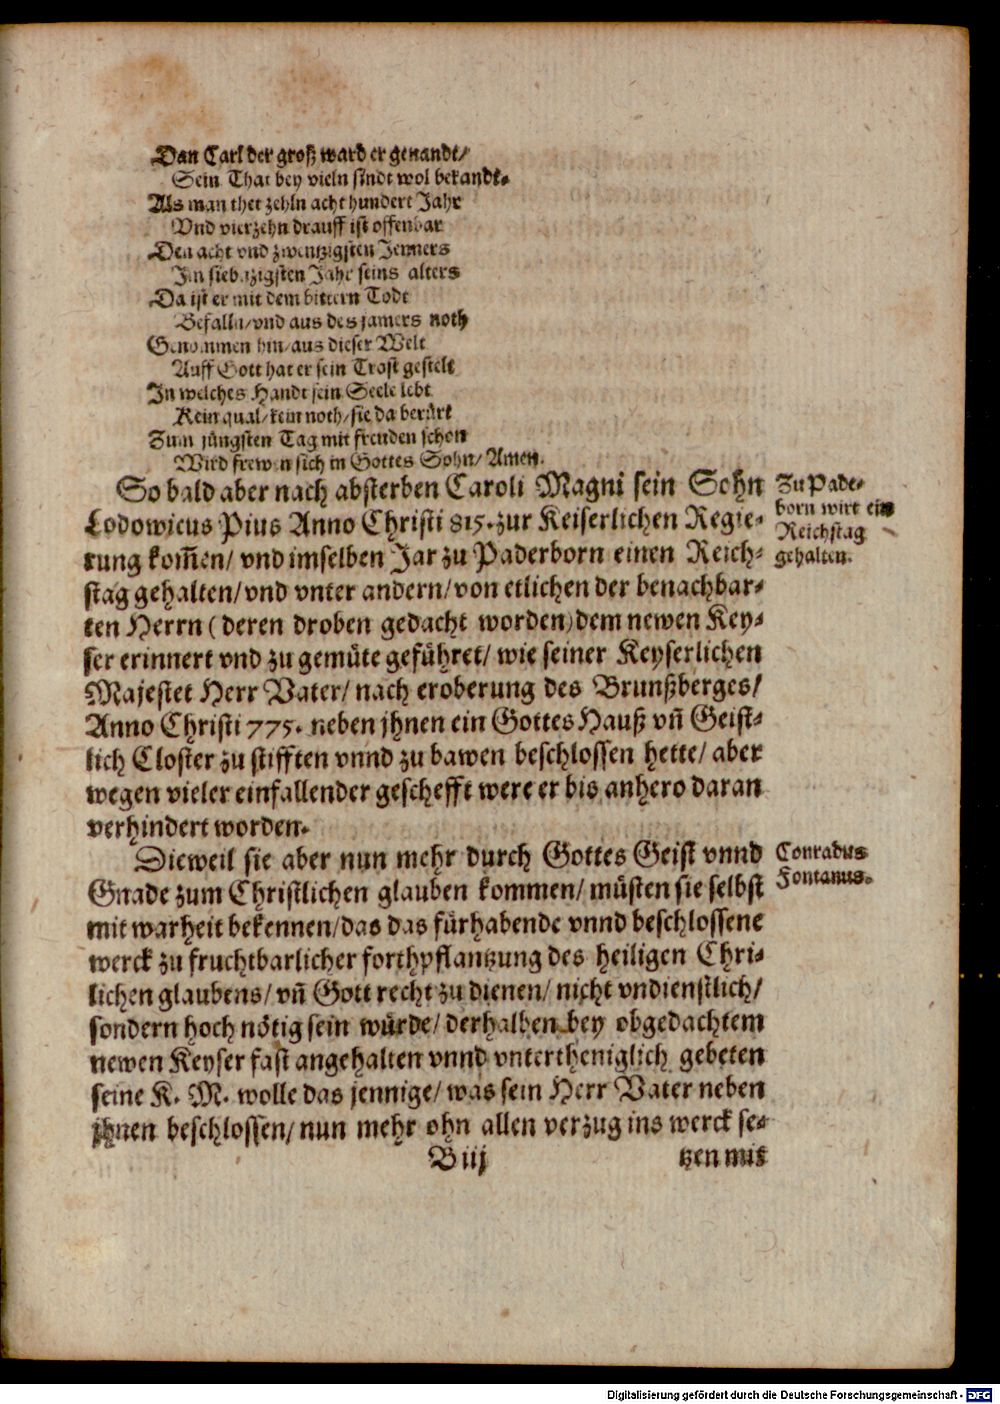 Dan Carl der groß ward er genandt/
Sein That bey vieln sindt wol bekandt.
Als man thet zehln acht hundert Jahr
Vnd vierzehn drauff ist offenbar
Den acht vnd zwentzigsten Jenners
Im siebntzigsten Jahr seins alters
Da ist er mit dem bittern Todt
Befalln/vnd aus des jamers noth
Genommen hin/aus dieser Welt
Auff Gott hat er sein Trost gestelt
In welches Handt sein Seele lebt
Kein qual/kein noth/sie da berürt
Zum jüngsten Tag mit freuden schon
Wird frewen sich in Gottes Sohn/Amen.
So bald aber nach absterben Caroli Magni sein Sohn
Lodowicus Pius Anno Christi 815. zur Keiserlichen Regie-
rung kom̃en/ vnd imselben Jar zu Paderborn einen Reich-
stag gehalten/vnd vnter andern/von etlichen der benachbar-
ten Herrn (deren droben gedacht worden) dem newen Key-
ser erinnert vnd zu gemüte geführet/ wie seiner Keyserlichen
Majestet Herr Vater/ nach eroberung des Brunßberges/
Anno Christi 775. neben jhnen ein Gottes Hauß vn̄ Geist-
lich Closter zu stifften vnnd zu bawen beschlossen hette/ aber
wegen vieler einfallender geschefft were er bis anhero daran
verhindert worden.
Zu Pade-
born wirt ein
Reichstag
gehalten.
Dieweil sie aber nun mehr durch Gottes Geist vnnd
Gnade zum Christlichen glauben kommen/ müsten sie selbst
mit warheit bekennen/das das fürhabende vnnd beschlossene
werck zu fruchtbarlicher forthpflantzung des heiligen Chri-
lichen glaubens/ vn̄ Gott recht zu dienen/ nicht vndienstlich/
sondern hoch nötig sein würde/ derhalben bey obgedachtem
newen Keyser fast angehalten vnnd vntertheniglich gebeten
seine K. M. wolle das jennige/ was sein Herr Vater neben
jhnen beschlossen/ nun mehr ohn allen verzug ins werck se-
Conradus
Fontanus.
B iij
tzen mit
Digitalisierung gefördert durch die Deutsche Forschungsgemeinschaft - DFG